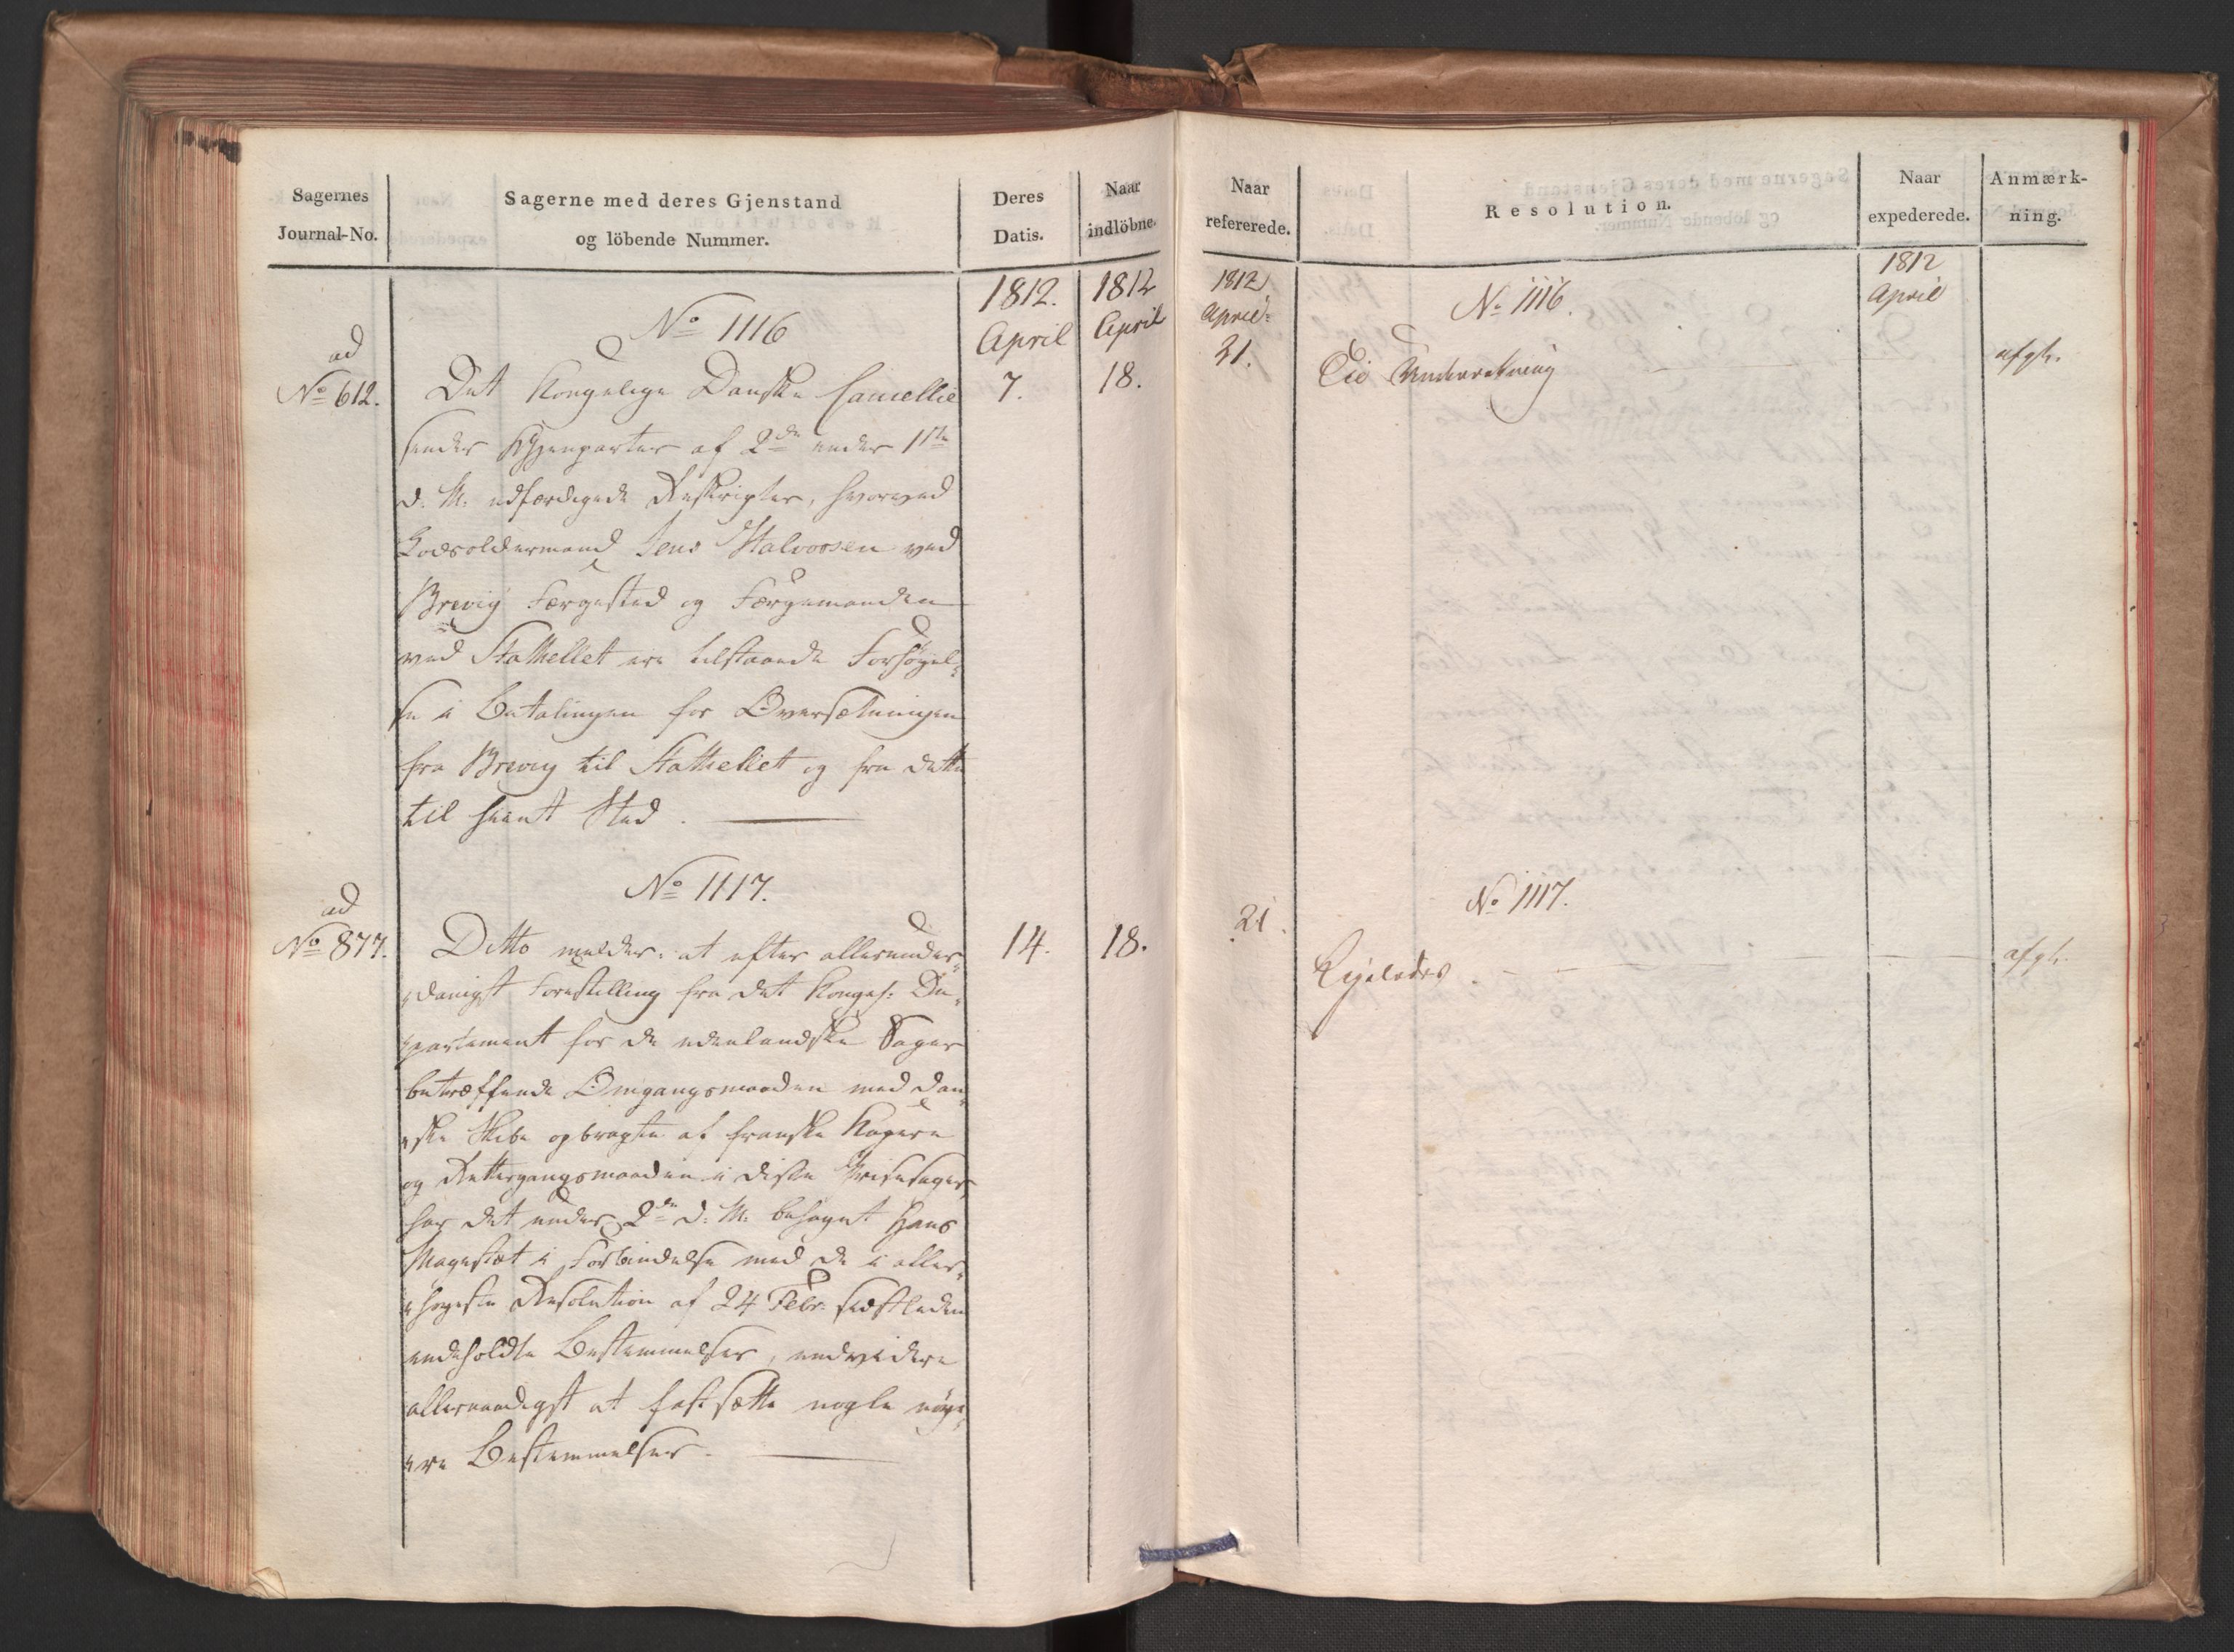 Sagernes
Journal-No.
Sagerne med deres Gjenstand
og löbende Nummer.
Deres
Datis.
Naar
indlöbne.
1812.
April
1812
April
No 1116
ad
No 612.
Det Kongelige Danske Cancellie
7.
18.
sender Gjenparter af 2de under 1ste
d. M. udfærdigede Rescripter, hvorved
Lodsoldermand Jens Halvorsen ved
Brevig Færgested og Færgemanden
ved Stathellet ere tilstaaede Forhøyel-
se i Betalingen for Oversætningen
fra Brevig til Stathellet og fra dette
til hiint Sted.
No 1117.
ad
No 877.
Ditto melder: at efter allerunder-
14.
18.
danigst Forestilling fra det Kongel: De-
partement for de udenlandske Sager
betræffende Omgangsmaaden med dan-
ske Skibe opbragte af franske Kapere
og Rettergangsmaaden i disse Prisesager,
har det under 2den d: M: behaget Hans
Majestæt i Forbindelse med de i aller-
høyeste Resolution af 24 Febr: sidstleden
indeholdte Bestemmelser, endvidere
allernaadigst at fastsætte nogle nøy-
ere Bestemmelser.
Naar
refererede.
Resolution.
Naar
expederede.
Anmærk-
ning.
1812
April
21.
No 1116.
1812
April
Underretning
afgk.
No 1117.
21.
Ligeledes.
afgk.